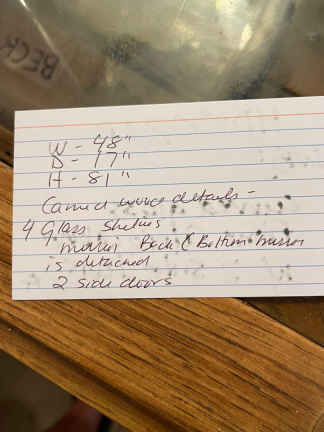 BECK
W - 48"
D - 17"
H - 81"
Carved wood details -
4 Glass shelves
mirror Back & Bottom mirror
is detached
2 side doors